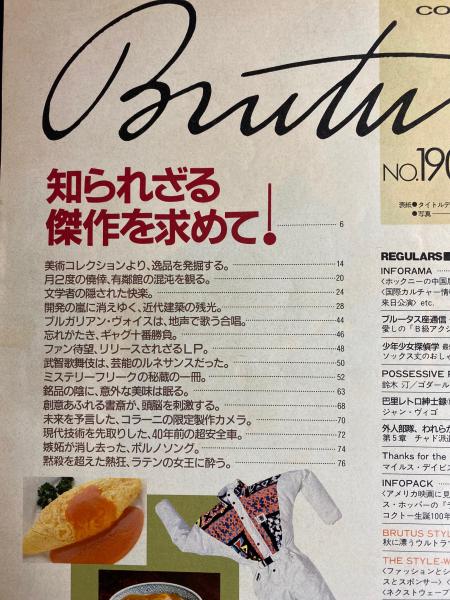 CO
Brutu
NO.190
知られざる
傑作を求めて! 6
美術コレクションより、逸品を発掘する。 14
月2度の僥倖、有鄰館の混沌を観る。 20
文学者の隠された快楽。 24
開発の嵐に消えゆく、近代建築の残光。 28
ブルガリアン・ヴォイスは、地声で歌う合唱。 44
忘れがたき、ギャグ十番勝負。 46
ファン待望、リリースされざるLP。 48
武智歌舞伎は、芸能のルネサンスだった。 50
ミステリーフリークの秘蔵の一冊。 52
銘品の陰に、意外な美味は眠る。 63
創意あふれる書斎が、頭脳を刺激する。 68
未来を予言した、コラーニの限定製作カメラ。 70
現代技術を先取りした、40年前の超安全車。 72
嫉妬が消し去った、ポルノソング。 74
黙殺を超えた熱狂、ラテンの女王に酔う。 76
表紙●タイトルデ
●写真
REGULARS■
INFORAMA
〈ホックニーの中国
〈国際カルチャー情
来日公演〉etc.
ブルータス座通信
愛しの「B級アク
少年少女探偵学
ソックス丈のおし
POSSESSIVE
鈴木 汀/ゴダール
巴里レトロ紳士録
ジャン・ヴィゴ
外人部隊、われら
第5章 チャド派
Thanks for the
マイルス・デイビ
INFOPACK
〈アメリカ映画に見
ス・ホッパーの『
コクトー生誕100年
BRUTUS STYL
秋に濃うウルトラ
THE STYLE-W
〈ファッションとシ
スとスポンサー〉〈
〈ネクストウェーブ